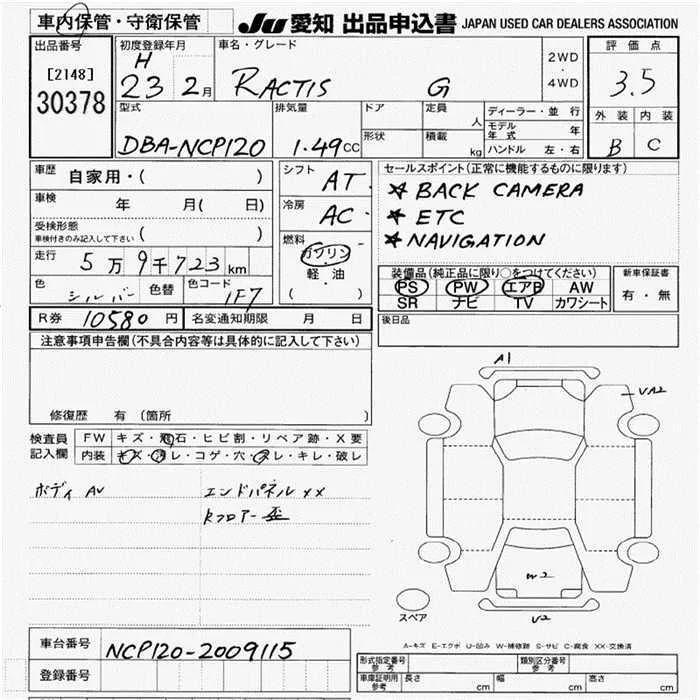 車内保管・守衛保管
JU 愛知 出品申込書 JAPAN USED CAR DEALERS ASSOCIATION
出品番号
[2148]
30378
初度登録年月
H
23 2月
車名・グレード
RACTIS G
2WD
・
4WD
評価点
3.5
外装 内装
B C
型式
DBA-NCP120
排気量
1.49CC
ドア
形状
定員
人
積載
kg
ディーラー・並行
モデル年式 年
ハンドル 左・右
車歴 自家用・( )
車検 年 月( 日)
受検形態
車検付きのみ記入して下さい ( )
走行 5万9千723km
色 シルバー 色替 色コード 1F7
シフト AT
冷房 AC
燃料
ガソリン
軽油
( )
セールスポイント(正常に機能するものに限ります)
★ BACK CAMERA
★ ETC
★ NAVIGATION
装備品(純正品に限り○をつけてください)
PS PW エアB AW
SR ナビ TV カワシート
新車保証書
有・無
R券 10580円 名変通知期限 月 日
後日品
注意事項申告欄(不具合内容等は具体的に記入して下さい)
修復歴 有 (箇所
検査員
記入欄
FW キズ・飛石・ヒビ割・リペア跡・X要
内装 キズ・汚レ・コゲ・穴・スレ・キレ・破レ
ボディ AU
エンドパネル XX
Rフロアー歪
A1
UA2
W2
U2
スペア
A-キズ E-エクボ U-凹み W-補修跡 S-サビ C-腐食 XX-交換済
車台番号 NCP120-2009115
登録番号
形式指定番号
参考
類別区分番号
参考
車庫証明用
参考
長さ cm 幅 cm 高さ cm